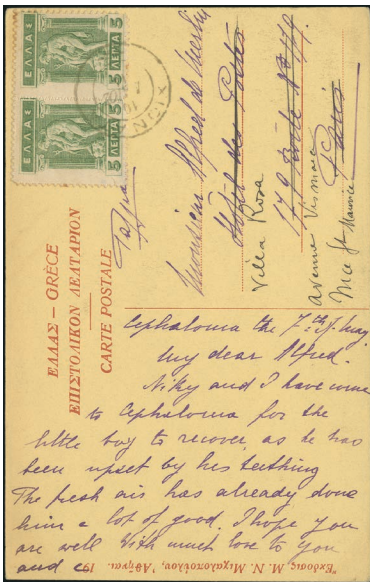 ΕΛΛΑΣ
5 ΛΕΠΤΑ 5
ΕΛΛΑΣ
5 ΛΕΠΤΑ 5
ΕΛΛΑΣ – GRÈCE
ΕΠΙΣΤΟΛΙΚΟΝ ΔΕΛΤΑΡΙΟΝ
CARTE POSTALE
Monsieur Alfred de
Hôtel des
Villa Rosa
179
Paris
avenue
Nice St Maurice
Cephalonia the 7th of May
My dear Alfred.
Niky and I have come
to Cephalonia for the
little boy to recover as he has
been upset by his teething
The fresh air has already done
him a lot of good. I hope you
are well with much love to you
and
Ἔκδοσις Μ. Ν. Μιχαλοπούλου, Ἀθῆναι. 191